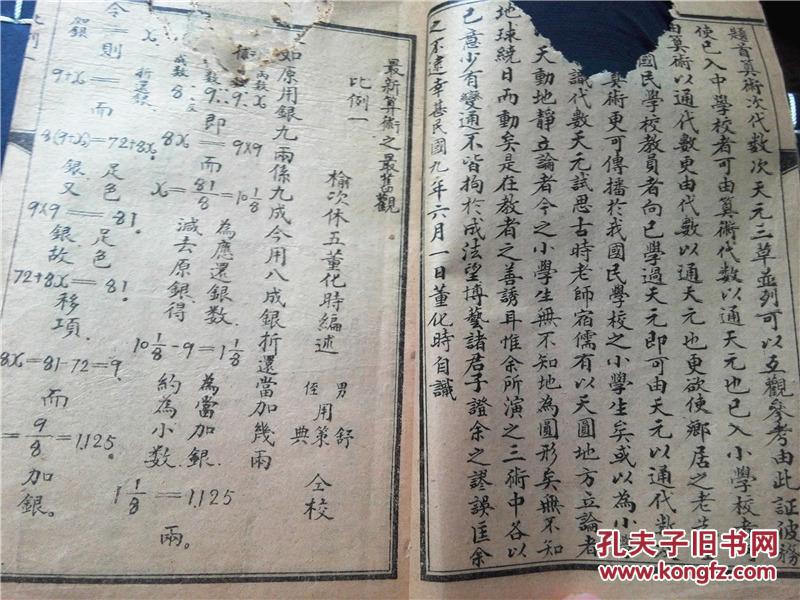 題首算術次代數次天元三草並列可以互觀參考由此証彼務
使已入中學校者可由算術代數以通天元也已入小學校者
由算術以通代數更由代數以通天元也更欲使鄉居之老
國民學校教員者向已學過天元即可由天元以通代數
算術更可傳播於我國民學校之小學生矣或以為小學
識代數天元試思古時老師宿儒有以天圓地方立論者
天動地靜立論者今之小學生無不知地為圓形矣無不知
地球繞日而動矣是在教者之善誘耳惟余所演之三術中各以
己意少有變通不皆拘於成法望博藝諸君子證余之謬誤匡余
之不逮幸甚民國九年六月一日董化時自識
最新算術之最舊觀
榆次休五董化時編述
男 用舒
侄 策典
仝校
比例一
如原用銀九兩係九成今用八成銀折還當加幾兩
丙數 x
9:9::8:x
即
8x=9×9
而
x=81/8=10 1/8
為應還銀數
減去原銀得
10 1/8-9=1 1/8
為當加銀
約為小數
1 1/8=1.125
兩。
令
加銀=x.
則
9+x=折還銀
而
8(9+x)=72+8x。
足色
銀又
9×9=81。
足色
銀故
72+8x=81。
移項
8x=81-72=9。
而
=9/8=1.125。
加銀。
比例一
孔夫子旧书网
www.kongfz.com